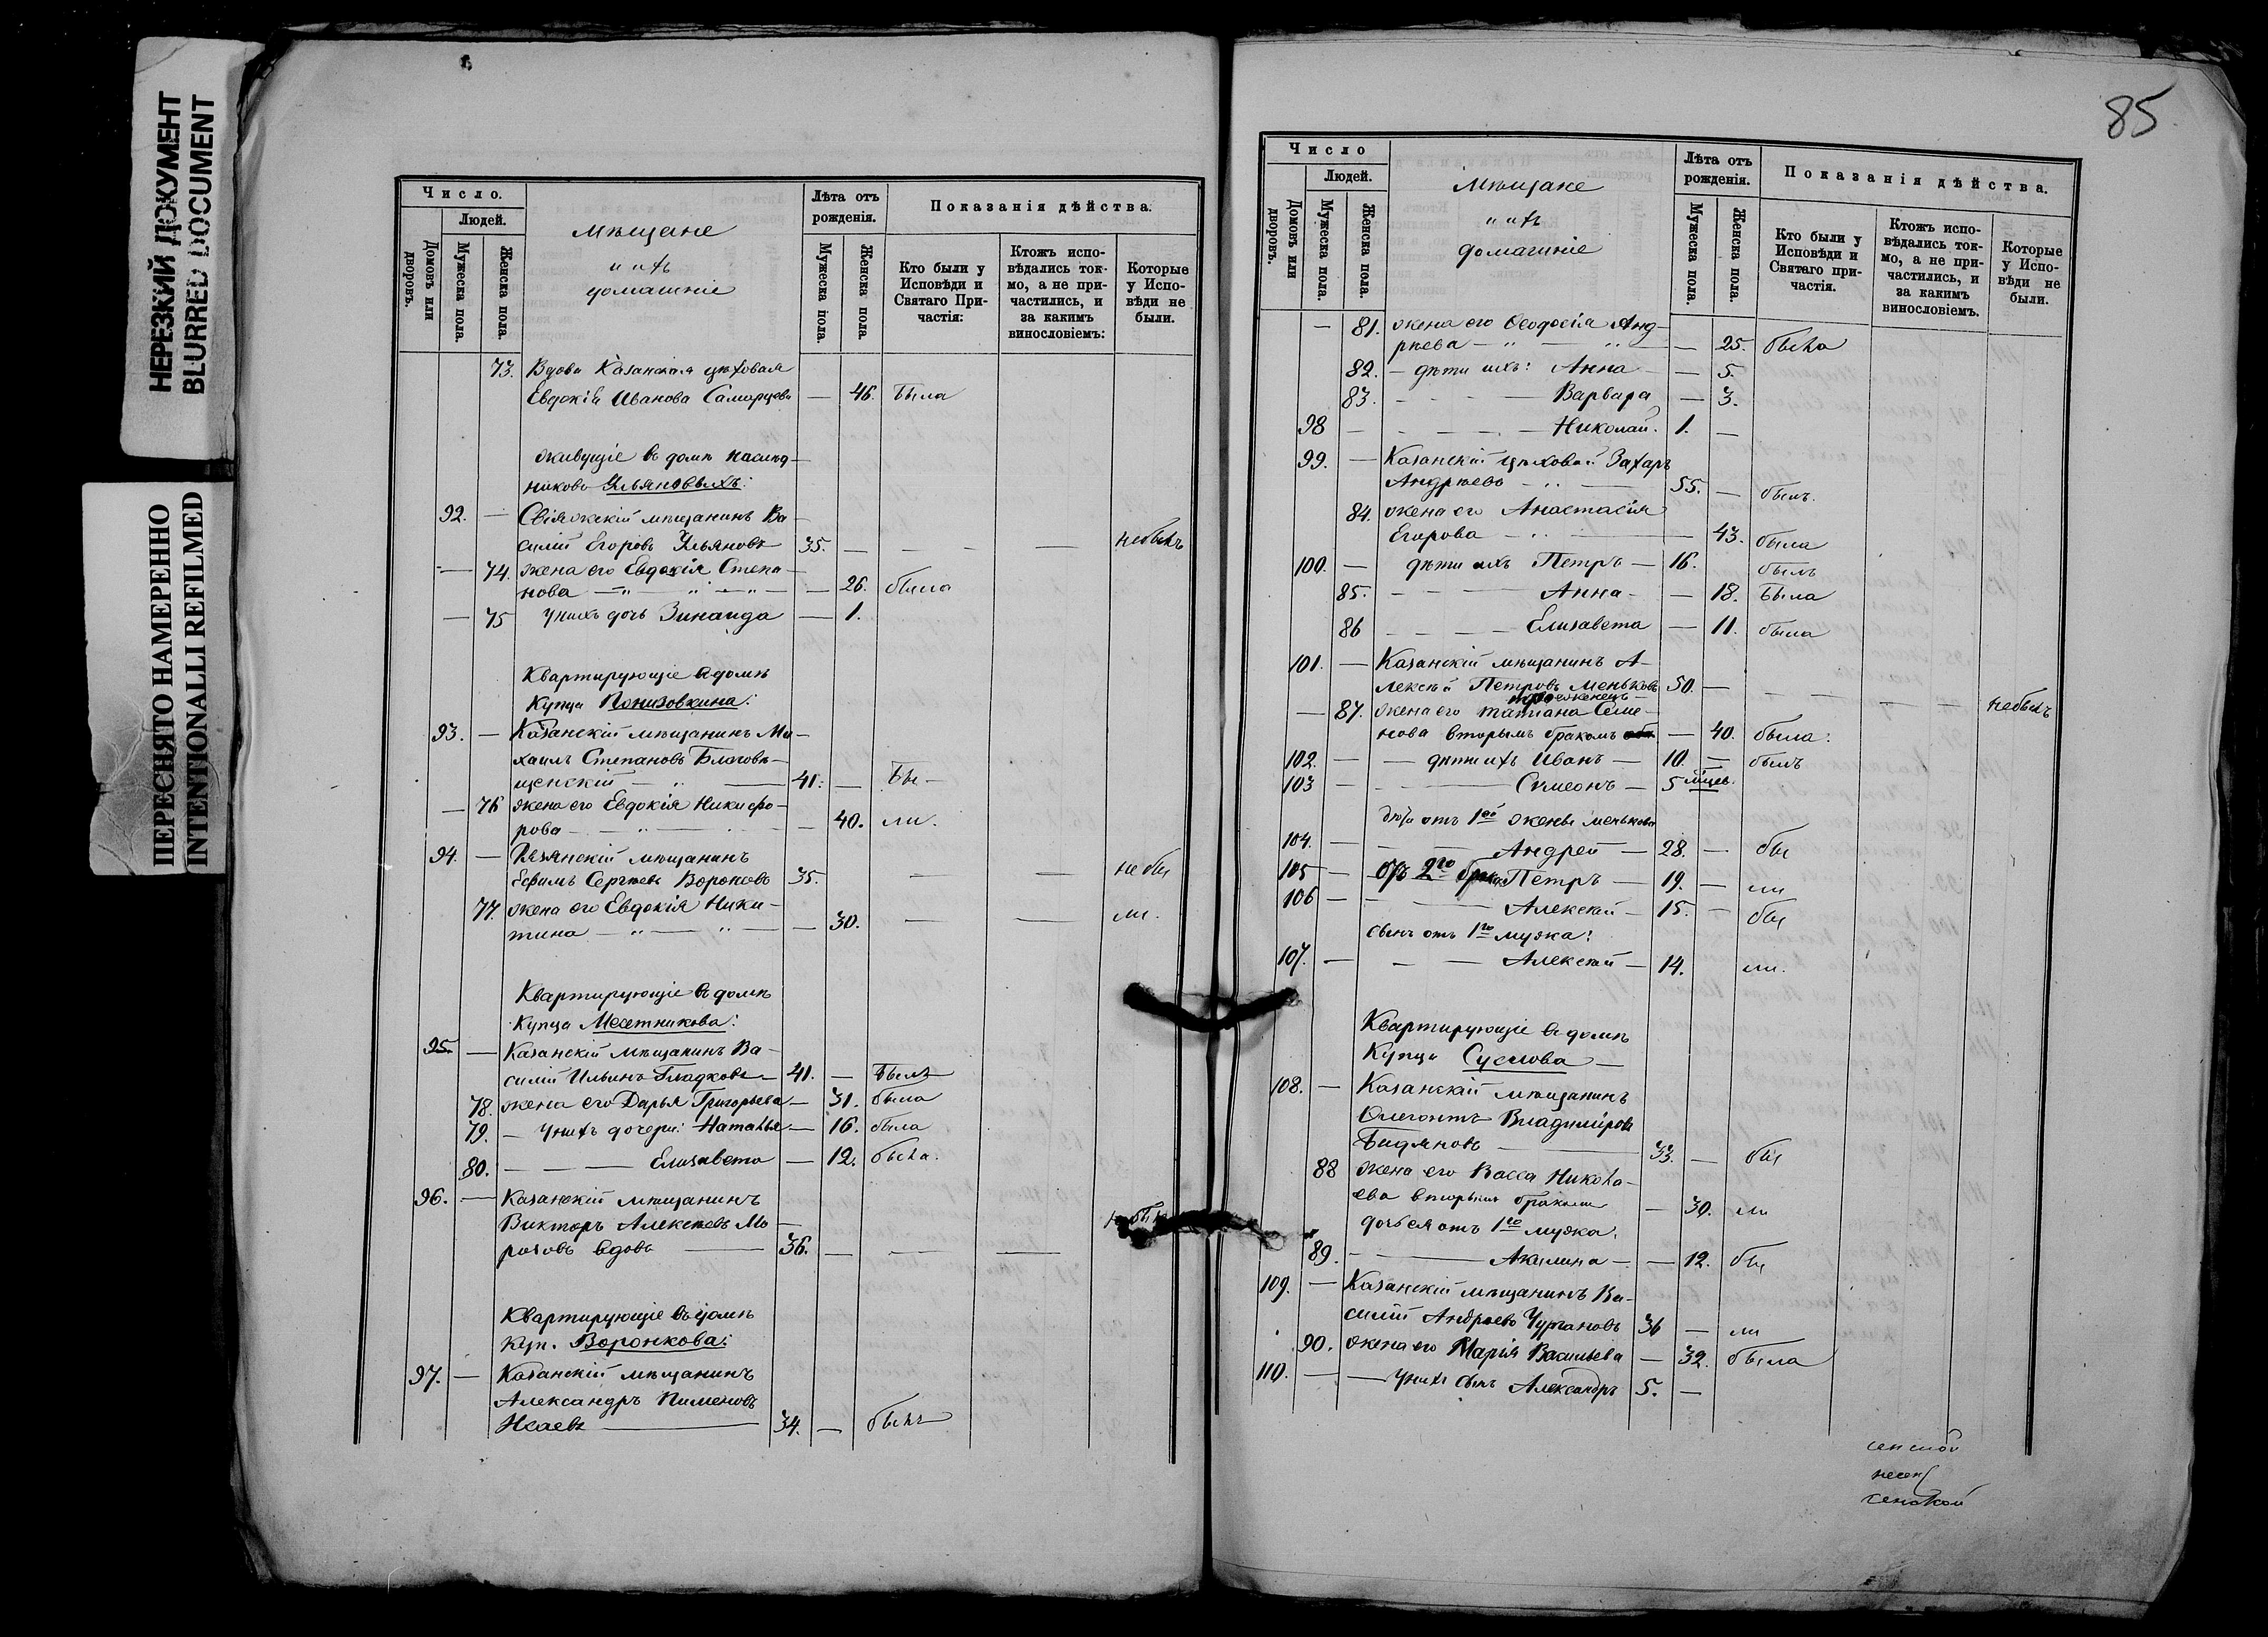 НЕРЕЗКИЙ ДОКУМЕНТ
BLURRED DOCUMENT
ПЕРЕСНЯТО НАМЕРЕННО
INTENTIONALLI REFILMED
Число.
Людей.
Домовъ или дворовъ.
Мужеска пола.
Женска пола.
Мѣщане
и ихъ
домашніе
Лѣта отъ рожденія.
Мужеска пола.
Женска пола.
Показанія дѣйства.
Кто были у Исповѣди и Святаго Причастія:
Ктожъ исповѣдались токмо, а не причастились, и за какимъ винословіемъ:
Которые у Исповѣди не были.
73. Вдова Казанская цѣховая
Евдокія Иванова — 46. Была
Живущіе въ домѣ наслѣд-
никовъ Ульяновыхъ:
92. — Свіяжскій мѣщанинъ Ва-
силій Егоровъ Ульяновъ 35. — — — небылъ
— 74. жена его Евдокія Степа-
нова — 26. была
— 75 у нихъ дочь Зинаида — 1.
Квартирующіе въ домѣ
Купца Понизовкина:
93. — Казанскій мѣщанинъ Ми-
хаилъ Степановъ Благовѣ-
щенскій — 41. — Бы-
— 76 жена его Евдокія Никифо-
рова — 40. ли.
94. — Рязанскій мѣщанинъ
Ефимъ Сергѣевъ Вороновъ 35. — — не бы
77. жена его Евдокія Ники-
тина — 30. — — ли.
Квартирующіе въ домѣ
Купца Месетникова:
95. — Казанскій мѣщанинъ Ва-
силій Ильинъ Гладковъ — 41. — Былъ
78. жена его Дарья Григорьева — 31. была
79. — у нихъ дочери: Наталья — 16. была
80. — — — Елизавета — 12. была.
96. — Казанскій мѣщанинъ
Викторъ Алексѣевъ Мо-
розовъ вдовъ — 36. — — —
Квартирующіе въ домѣ
Куп. Воронкова:
97. — Казанскій мѣщанинъ
Александръ Пименовъ
Исаевъ — 34. — былъ
85
Число
Людей.
Домовъ или дворовъ.
Мужеска пола.
Женска пола.
Мѣщане
и ихъ
домашніе
Лѣта отъ рожденія.
Мужеска пола.
Женска пола.
Показанія дѣйства.
Кто были у Исповѣди и Святаго причастія.
Ктожъ исповѣдались токмо, а не причастились, и за какимъ винословіемъ.
Которые у Исповѣди не были.
— 81. жена его Ѳеодосія Анд-
рѣева — 25. была
82. — дѣти ихъ: Анна — 5.
83. — — Варвара — 3.
98 — — — Николай. 1. —
99. — Казанскій цѣховой Захаръ
Андрѣевъ — 55. — былъ.
84. жена его Анастасія
Егорова — 43. была
100. — дѣти ихъ Петръ — 16. былъ
85. — — Анна — 18. Была
86 — — Елизавета — 11. была
101. — Казанскій мѣщанинъ А-
лексѣй Петровъ Меньковъ 50. — — — небылъ
троеженецъ
— 87. жена его Татіана Семе-
нова вторымъ бракомъ — 40. была.
102. — — дѣти ихъ Иванъ — 10. — былъ
103 — — Симеонъ — 5 мѣцев.
дѣти отъ 1ой жены Менькова
104. — — Андрей — 28. — бы
105 — отъ 2го брака Петръ — 19. — ли
106 — — Алексѣй — 15. — бы
сынъ отъ 1го мужа:
107. — — Алексѣй — 14. ли.
Квартирующіе въ домѣ
Купца Суслова —
108. — Казанскій мѣщанинъ
Владиміровъ
— 33. — бы
88 жена его Васса Никола-
ева вторымъ бракомъ — 30. ли
дочь ея отъ 1го мужа.
89. — Акилина — — 12. бы
109. — Казанскій мѣщанинъ Ва-
силій Андреевъ Чургановъ 36 — ли
90. жена его Марія Васильева — 32. была
110. — — у нихъ сынъ Александръ 5. —